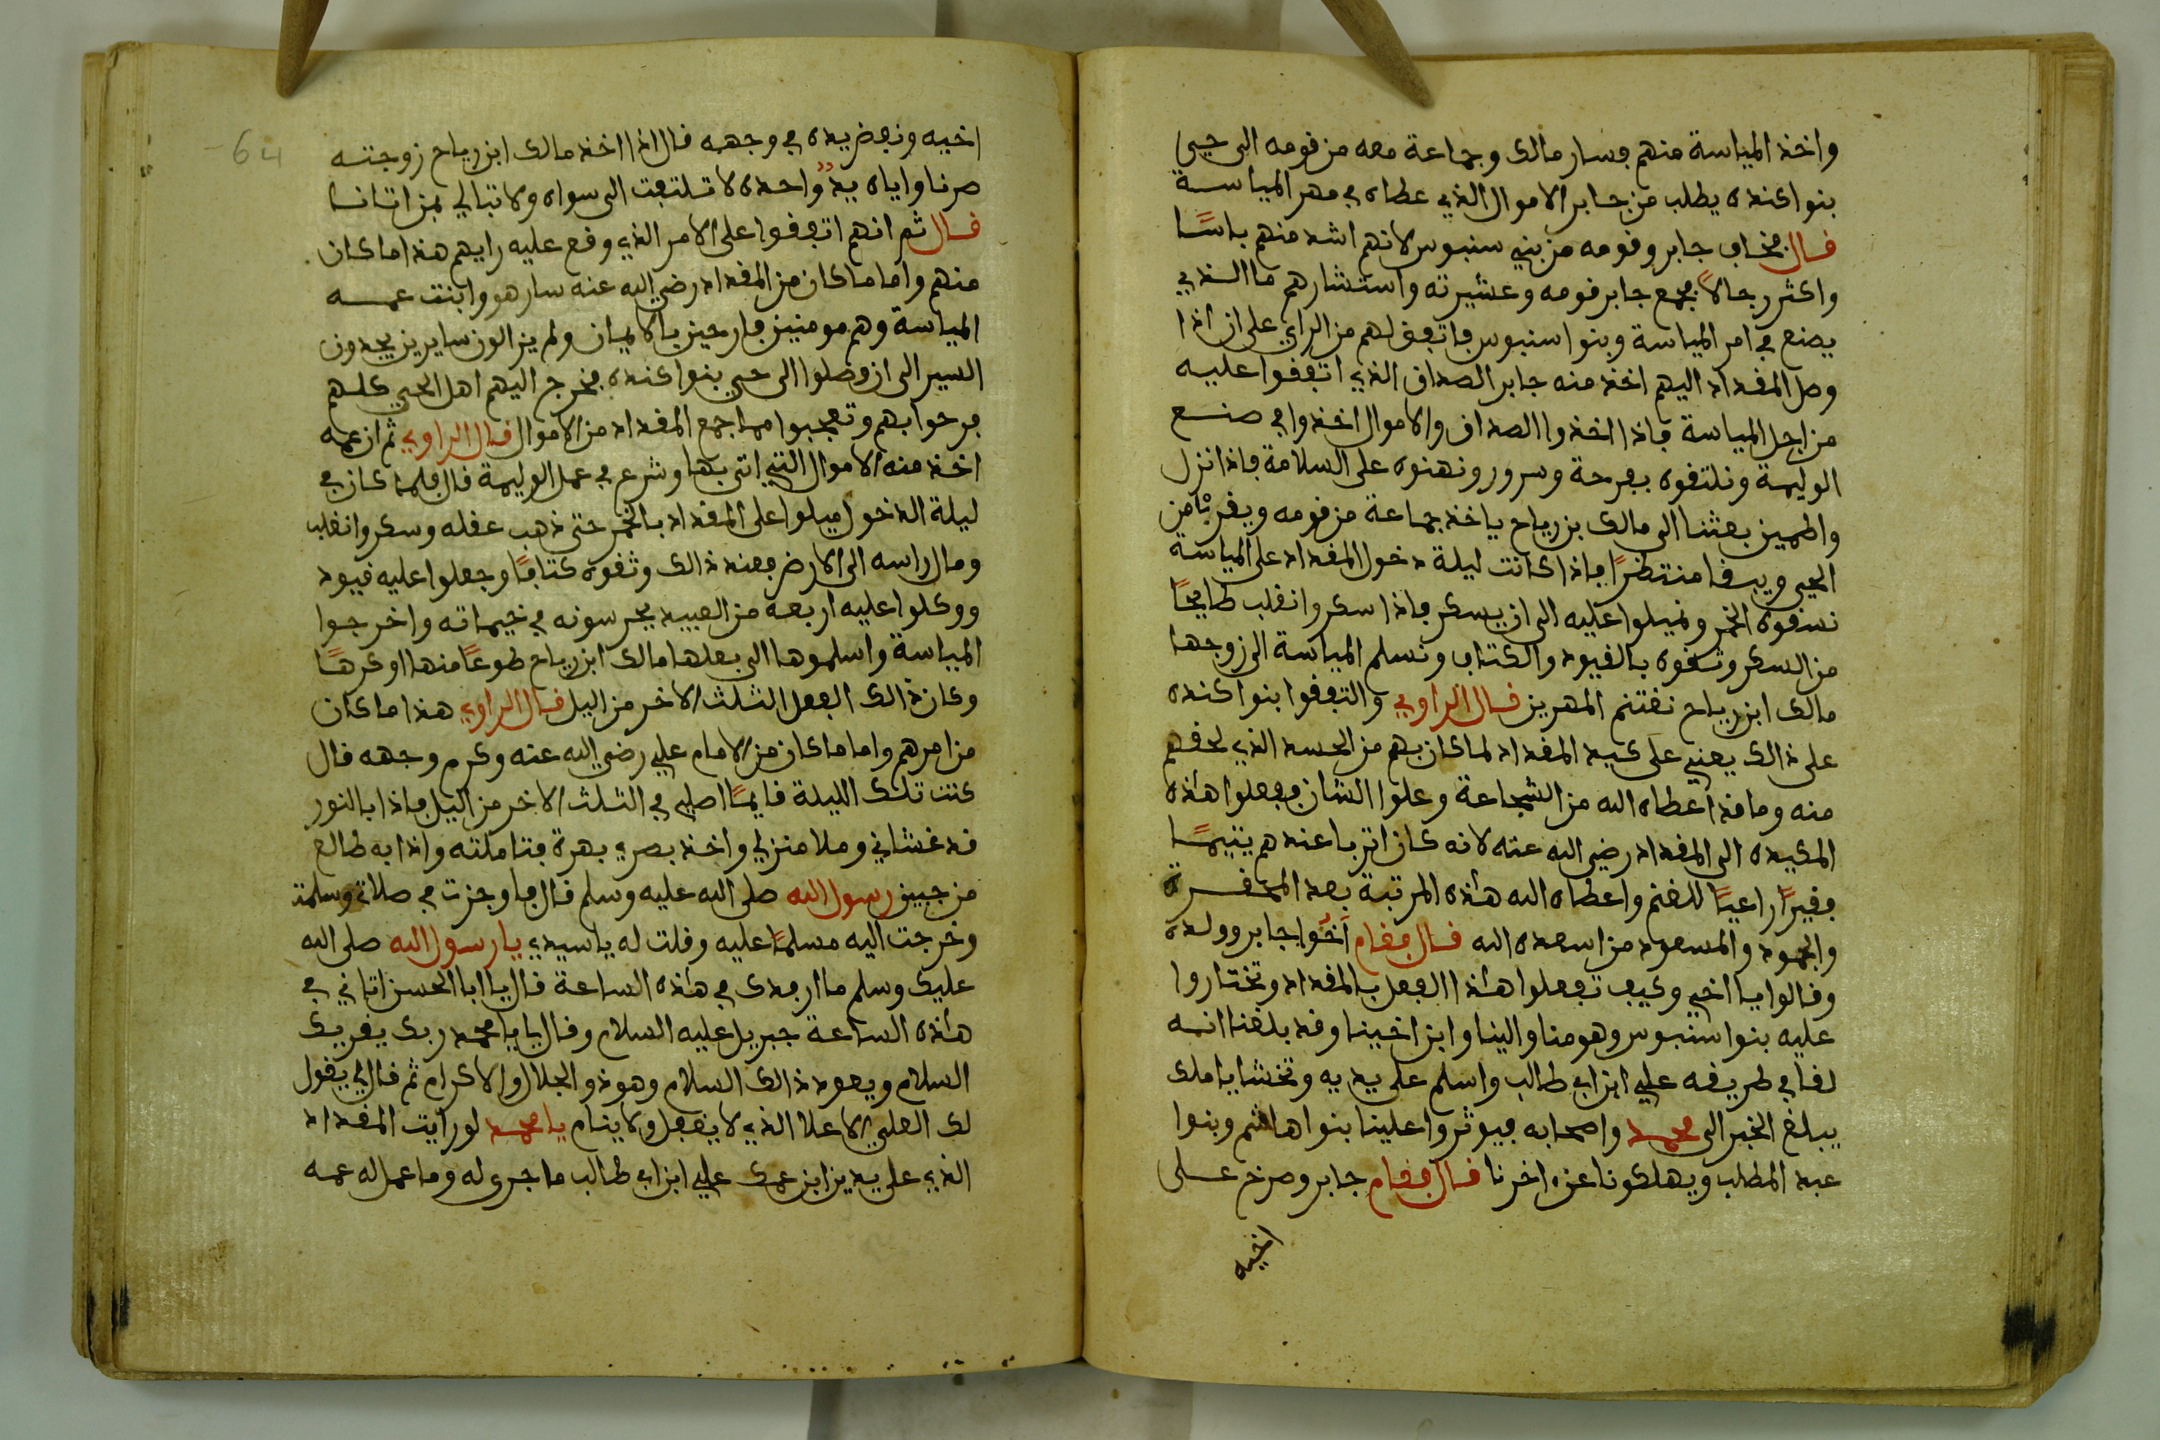 واخذ المياسة منهم فسار مالك وجماعة معه من قومه الى حيي
بنوا كنده يطلب من جابر الاموال الذي عطاه في مهر المياسة
قال فخاف جابر وقومه من بني سنبوس لانهم اشد منهم باسًا
واكثر رجالاً فجمع جابر قومه وعشيرته واستشارهم ما الذي
يصنع في امر المياسة وبنوا سنبوس فاتفق لهم من الراي على ان اذا
وصل المقداد اليهم اخذ منه جابر الصداق الذي اتفقوا عليه
من اجل المياسة فاذا اخذوا الصداق والاموال اخذوا في صنع
الوليمة ونلتقوه بفرحة وسرور ونهنوه على السلامة فاذا نزل
واطمين بعثنا الى مالك بن رياح ياخذ جماعة من قومه ويقرب من
الحيي ويبقا منتظرًا فاذا كانت ليلة دخول المقداد على المياسة
نسقوه الخمر ونميلوا عليه الى ان يسكر فاذا سكر وانقلب طايحًا
من السكر وثقوه بالقيود والكتاف ونسلم المياسة الى زوجها
مالك ابن رياح نغتنم المهرين قال الراوي والتفقوا بنوا كنده
على ذالك يعني على كيد المقداد لما كان بهم من الحسد الذي لحقهم
منه وما قد اعطاه الله من الشجاعة وعلوا الشان ففعلوا هاذه
المكيده الى المقداد رضي الله عنه لانه كان اتربا عندهم يتيمًا
فقيرًا راعيًا للغنم واعطاه الله هاذه المرتبة بعد المحقرة
والجهود والمسعود من اسعده الله قال فقام اخوا جابر وولده
وقالوا يا اخي وكيف تفعلوا هاذا الفعل بالمقداد وتختاروا
عليه بنوا سنبوس وهو منا والينا وابن اخينا وقد بلغنا انه
لقا في طريقه علي ابن ابي طالب واسلم على يديه ونخشا يا ملك
يبلغ الخبر الى محمد واصحابه فيوثروا علينا بنوا هاشم وبنوا
عبد المطلب ويهلكونا عن اخرنا قال فقام جابر وصرخ على
اخيه
اخيه ونفض يده في وجهه قال اذا اخذ مالك ابن رياح زوجته
صرنا واياه يد واحده لا تلتفت الى سواه ولا تبالي بمن اتانا
قال ثم انهم اتفقوا على الامر الذي وقع عليه رايهم هذا ما كان
منهم واما ما كان من المقداد رضي الله عنه سار هو وابنت عمه
المياسة وهم مومنين فارحين بالايمان ولم يزالون سايرين يجدون
السير الى ان وصلوا الى حيي بنوا كنده فخرج اليهم اهل الحيي كلهم
فرحوا بهم وتعجبوا مما جمع المقداد من الاموال قال الراوي ثم ان عمه
اخذ منه الاموال التي اتى بها وشرع في عمل الوليمة قال فلما كان في
ليلة الدخول ميلوا على المقداد بالخمر حتى ذهب عقله وسكر وانقلب
ومال راسه الى الارض فعند ذالك وثقوه كتافًا وجعلوا عليه قيود
ووكلوا عليه اربعه من العبيد يحرسونه في خيماته واخرجوا
المياسة واسلموها الى بعلها مالك ابن رياح طوعًا منها اوكرهًا
وكان ذالك الفعل الثلث الاخر من اليل قال الراوي هذا ما كان
من امرهم واما ما كان من الامام علي رضي الله عنه وكرم وجهه قال
كنت تلك الليلة قايمًا اصلي في الثلث الاخر من اليل فاذا بالنور
قد غشاني وملا منزلي واخذ بصري بهرة فتاملته واذا به طالع
من جبين رسول الله صلى الله عليه وسلم قال فاوجزت في صلاتي وسلمت
وخرجت اليه مسلمًا عليه وقلت له يا سيدي يا رسول الله صلى الله
عليك وسلم ما ارفدك في هاذه الساعة قال يا ابا الحسن اتاني في
هاذه الساعة جبريل عليه السلام وقال يا محمد ربك يقريك
السلام ويعود ذالك السلام وهو ذو الجلال والاكرام ثم قال لي يقول
لك العلي الاعلا الذي لا يغفل ولا ينام يا محمد لو رايت المقداد
الذي على يدين ابن عمك علي ابن ابي طالب ما جرى له وما عمل له عمه
64